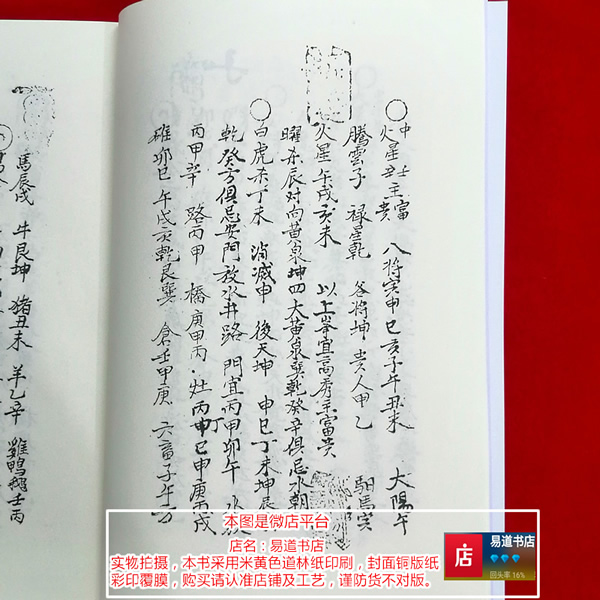 火星丑壬主富 八将寅申巳亥子午丑未 大陽午
中 貴
騰雲子 禄星乾 各将坤 貴人甲乙 馹馬寅
火星午戌亥未 以上峯宜高秀主富貴
曜杀辰对向黄泉坤四大黄泉巽乾癸辛俱忌水朝
○白虎杀丁未 消滅申 後天坤 申巳丁未坤辰
乾癸方俱忌安門放水井路 門宜丙甲卯午 水放
丙甲辛 路丙甲 橋庚甲丙 灶丙申巳甲庚丙戌
丁
碓卯巳 午戌亥乾艮巽 倉壬甲庚 六畜子午方
馬辰戌 牛艮坤 猪丑未 羊乙辛 雞鴨鵝壬丙
本图是微店平台
店名：易道书店
实物拍摄，本书采用米黄色道林纸印刷，封面铜版纸
彩印覆膜，购买请认准店铺及工艺，谨防货不对版。
店
易道书店
回头率 16%